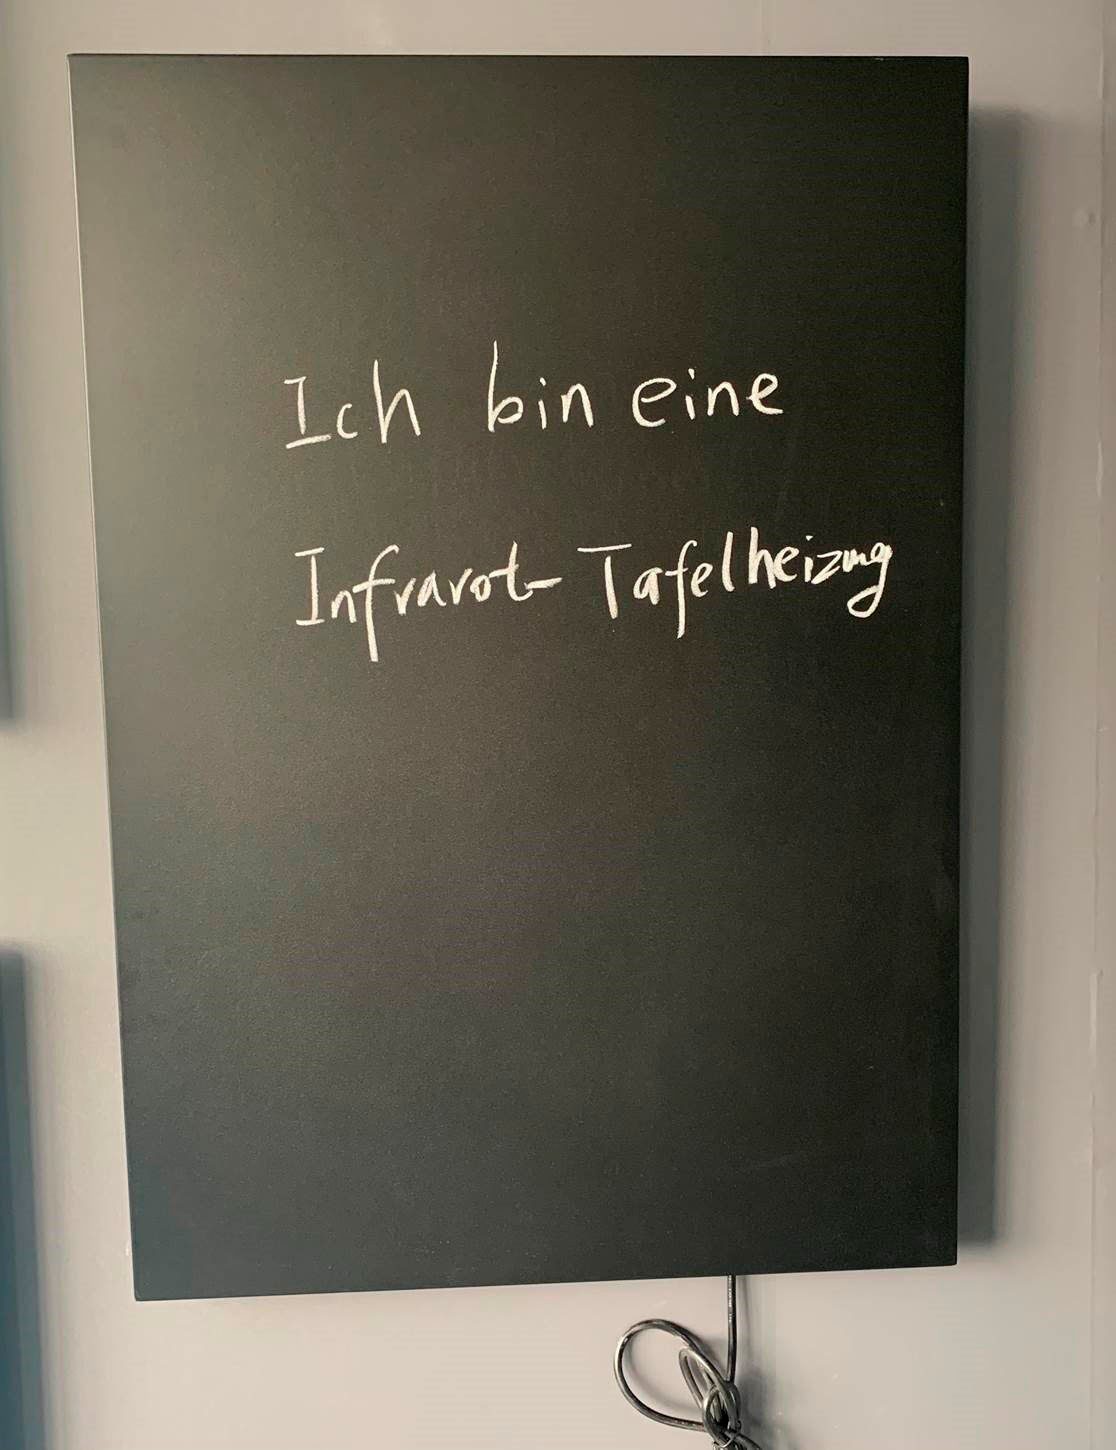 Ich bin eine
Infrarot-Tafelheizung